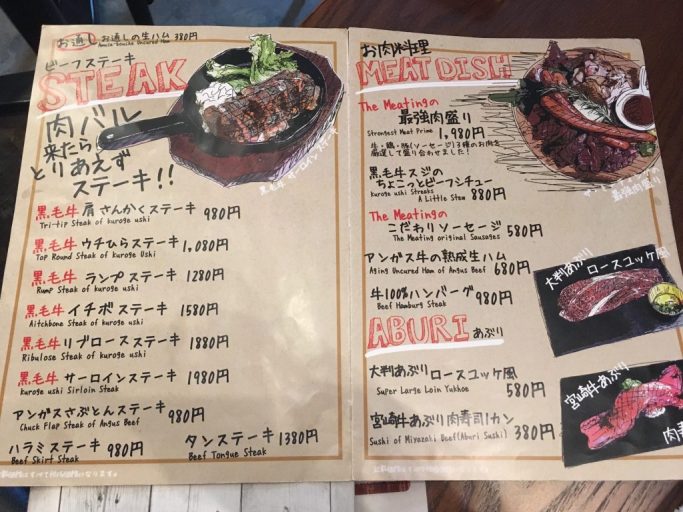 お通し お通しの生ハム 380円
Amuse-bouche Uncured Ham
ビーフステーキ
STEAK
肉バル
来たら
とりあえず
ステーキ!!
黒毛牛 サーロインステーキ
黒毛牛 肩さんかくステーキ 980円
Tri-tip Steak of kuroge ushi
黒毛牛 ウチひらステーキ 1,080円
Top Round Steak of kuroge Ushi
黒毛牛 ランプステーキ 1280円
Rump Steak of kuroge ushi
黒毛牛 イチボステーキ 1580円
Aitchbone Steak of kuroge ushi
黒毛牛 リブロースステーキ 1880円
Ribulose Steak of kuroge ushi
黒毛牛 サーロインステーキ 1980円
kuroge ushi Sirloin Steak
アンガスざぶとんステーキ 980円
Chuck Flap Steak of Angus Beef
ハラミステーキ 980円
Beef Skirt Steak
タンステーキ 1380円
Beef Tongue Steak
お肉料理
MEAT DISH
The Meatingの
最強肉盛り
Strongest Meat Prime 1,980円
牛・鶏・豚(ソーセージ)3種のお肉を
厳選して盛り合わせました!
最強肉盛り
黒毛牛スジの
ちょこっとビーフシチュー
kuroge ushi Streaks
A Little Stew 880円
The Meatingの
こだわりソーセージ 580円
The Meating original Sausages
アンガス牛の熟成生ハム
Aging Uncured Ham of Angus Beef 680円
牛100%ハンバーグ 980円
Beef Hamburg Steak
ABURI あぶり
大判あぶり
ロースユッケ風
大判あぶり ロースユッケ風
Super Large Loin Yukhoe 580円
宮崎牛あぶり
肉寿
宮崎牛あぶり肉寿司1カン
Sushi of Miyazaki Beef(Aburi Sushi) 380円